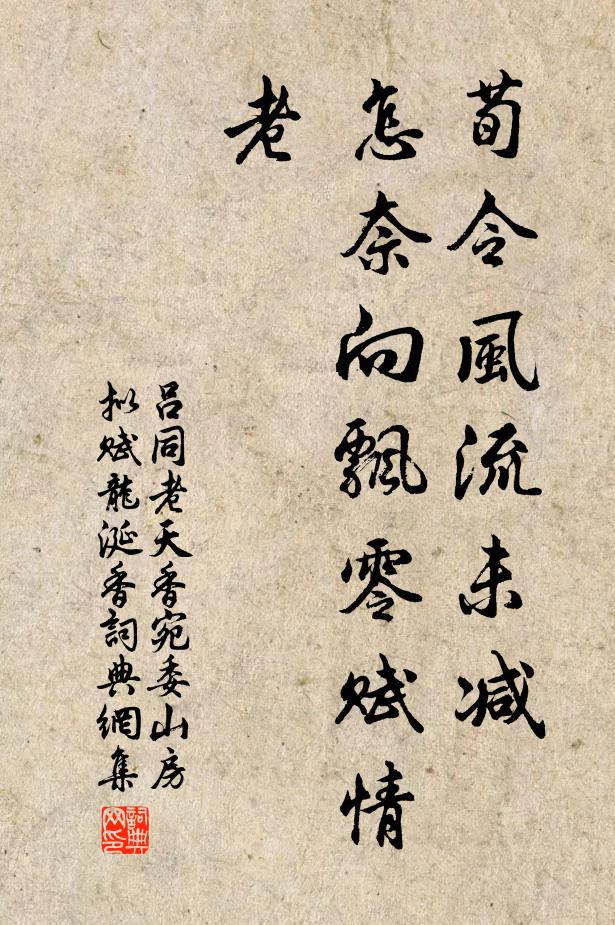 荀令風流未减
怎奈向飄零赋情
老
吕同老天香宛委山房
拟赋龍涎香詞典網集
詞典网印